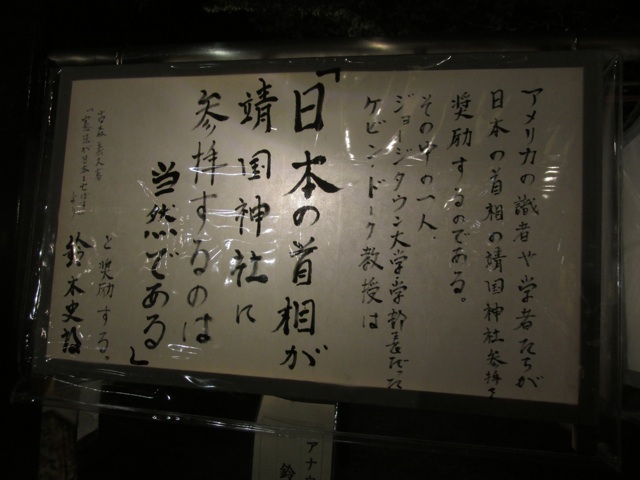 アメリカの識者や学者たちが
日本の首相の靖国神社参拝を
奨励するのである。
その中の一人、
ジョージタウン大学学幹長だった
ケビン・ドーク教授は
「日本の首相が
靖国神社に
参拝するのは
当然である」
と奨励する。
鈴木史
古森義久著
「憲法が日本を
より
アナ
鈴